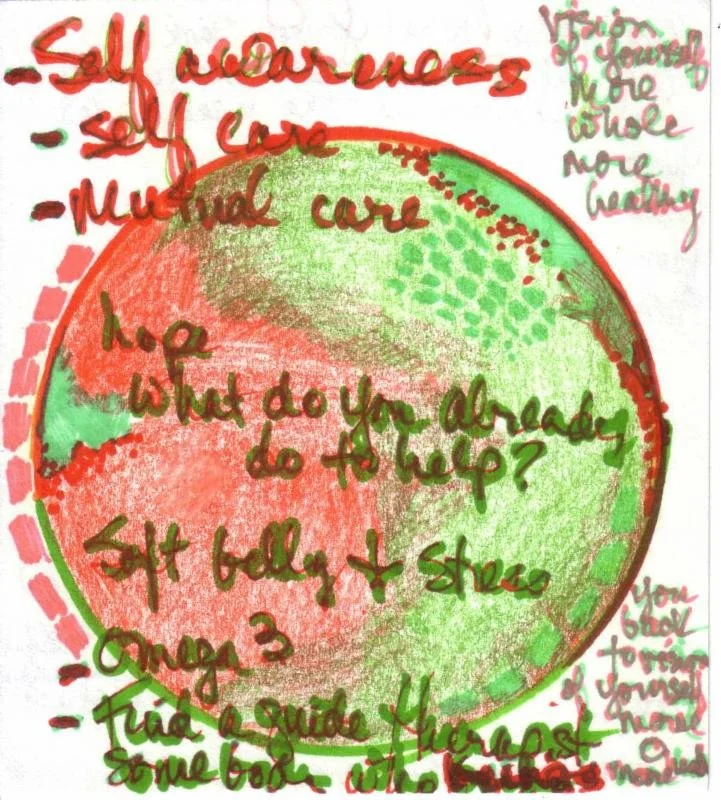 - Self awareness
- Self care
- Mutual care
hope
What do you already
do to help?
Soft belly + Stress
- Omega 3
- Find a guide Therapist
Somebody who brings
Vision
of yourself
more
whole
more
healthy
you
back
to vision
of yourself
more